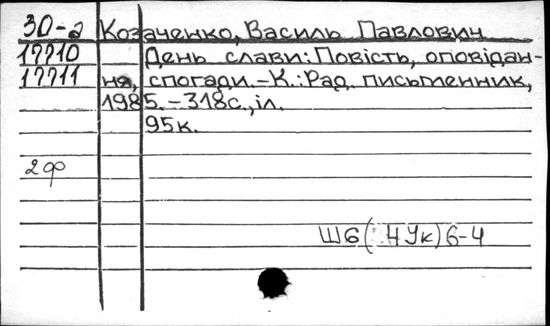 30-а Козаченко, Василь Павлович
17710 День слави: Повість, оповідан-
17711 ня, спогади.-К.: Рад. письменник,
1985.-318с., іл.
95к.
2ф
Ш6(4Ук)6-4